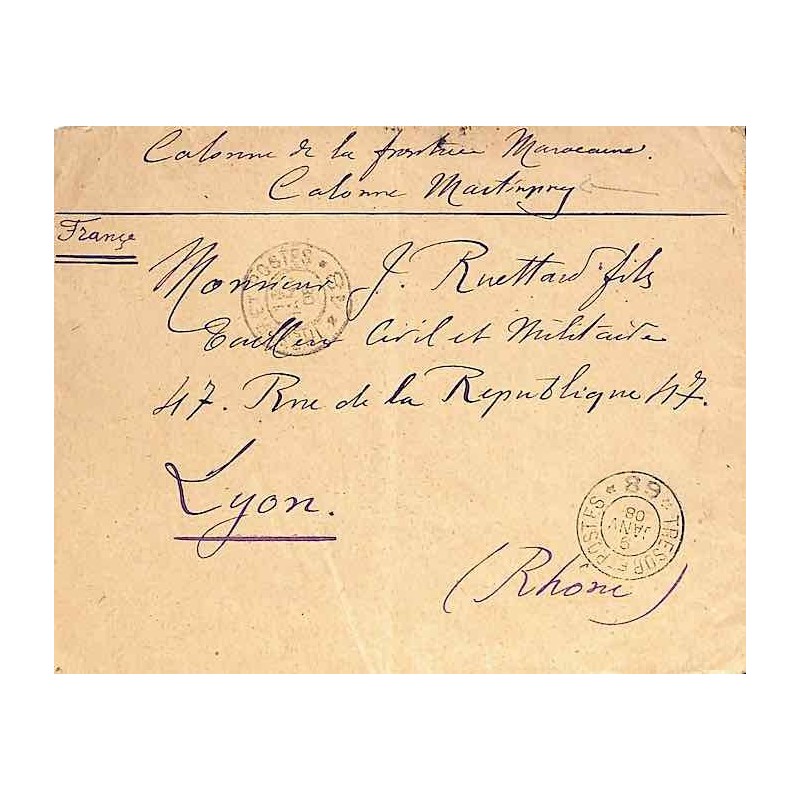 Colonne de la frontière Marocaine.
Colonne Martinprey
France
Monsieur J. Ruettard fils
Tailleur Civil et Militaire
47. Rue de la Republique 47.
Lyon.
(Rhône)
TRESOR ET POSTES * 89 *
9
JANV
08